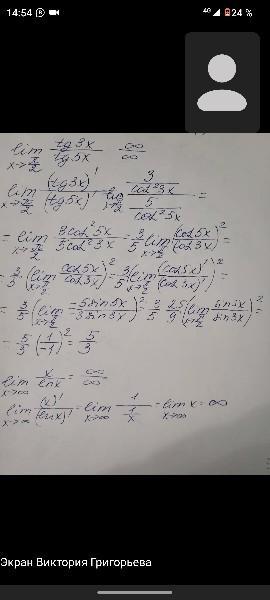 14:54
4G 24 %
lim x→π/2 tg3x/tg5x ∞/∞
lim x→π/2 (tg3x)'/(tg5x)' = lim x→π/2 (3/cos²3x)/(5/cos²5x) =
= lim x→π/2 3cos²5x/5cos²3x = 3/5 lim x→π/2 (cos5x/cos3x)² =
= 3/5 (lim x→π/2 cos5x/cos3x)² = 3/5 (lim x→π/2 (cos5x)'/(cos3x)')² =
= 3/5 (lim x→π/2 -5sin5x/-3sin3x)² = 3/5 · 25/9 (lim x→π/2 sin5x/sin3x)² =
= 5/3 (1/-1)² = 5/3
lim x→∞ x/lnx = ∞/∞
lim x→∞ (x)'/(lnx)' = lim x→∞ 1/(1/x) = lim x→∞ x = ∞
Экран Виктория Григорьева